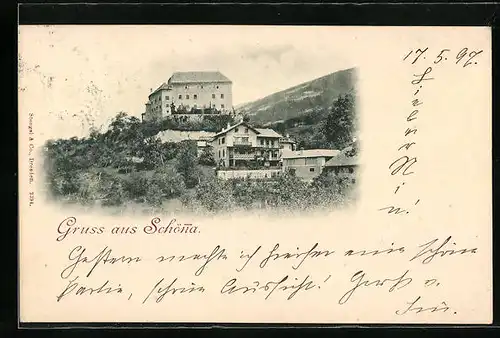 17. 5. 97.
Lieber
M
Stengel & Co., Dresden. 1394.
Gruss aus Schöna.
Gestern machte ich hierher eine schöne
Partie, schöne Aussicht! Gruß v.